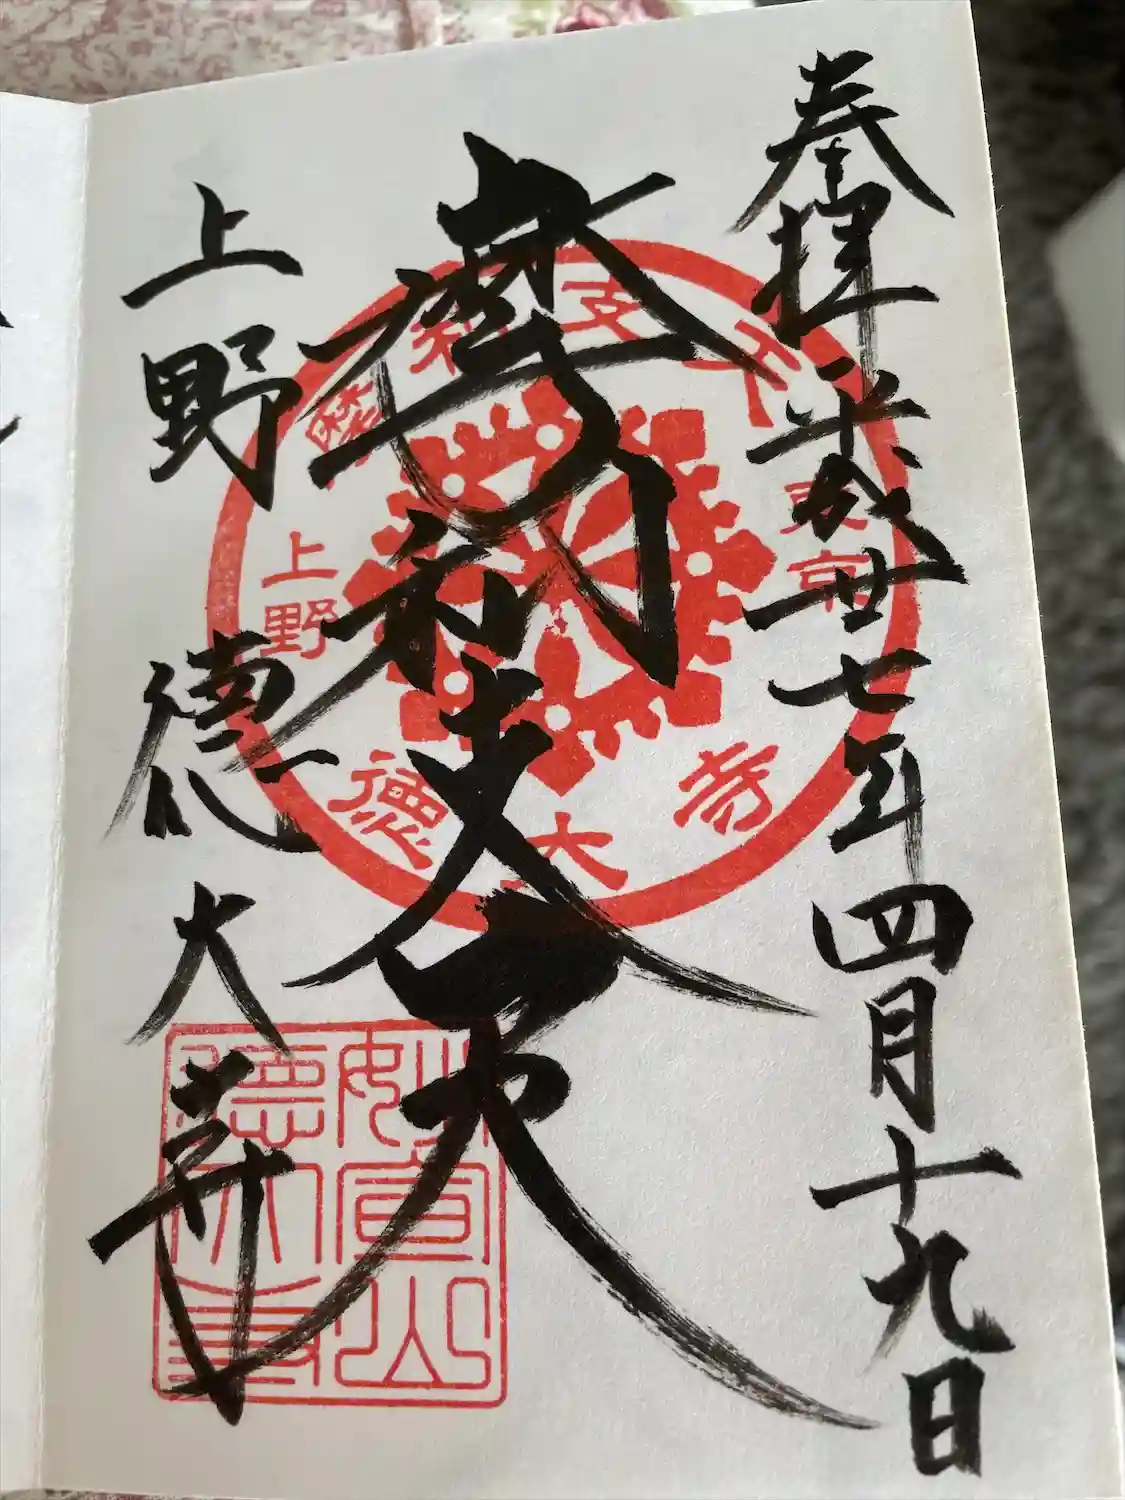 奉拝 平成廿七年四月十九日
摩利支天
上野 德大寺
摩利支天
東京
上野
德大寺
妙宣山
德大寺